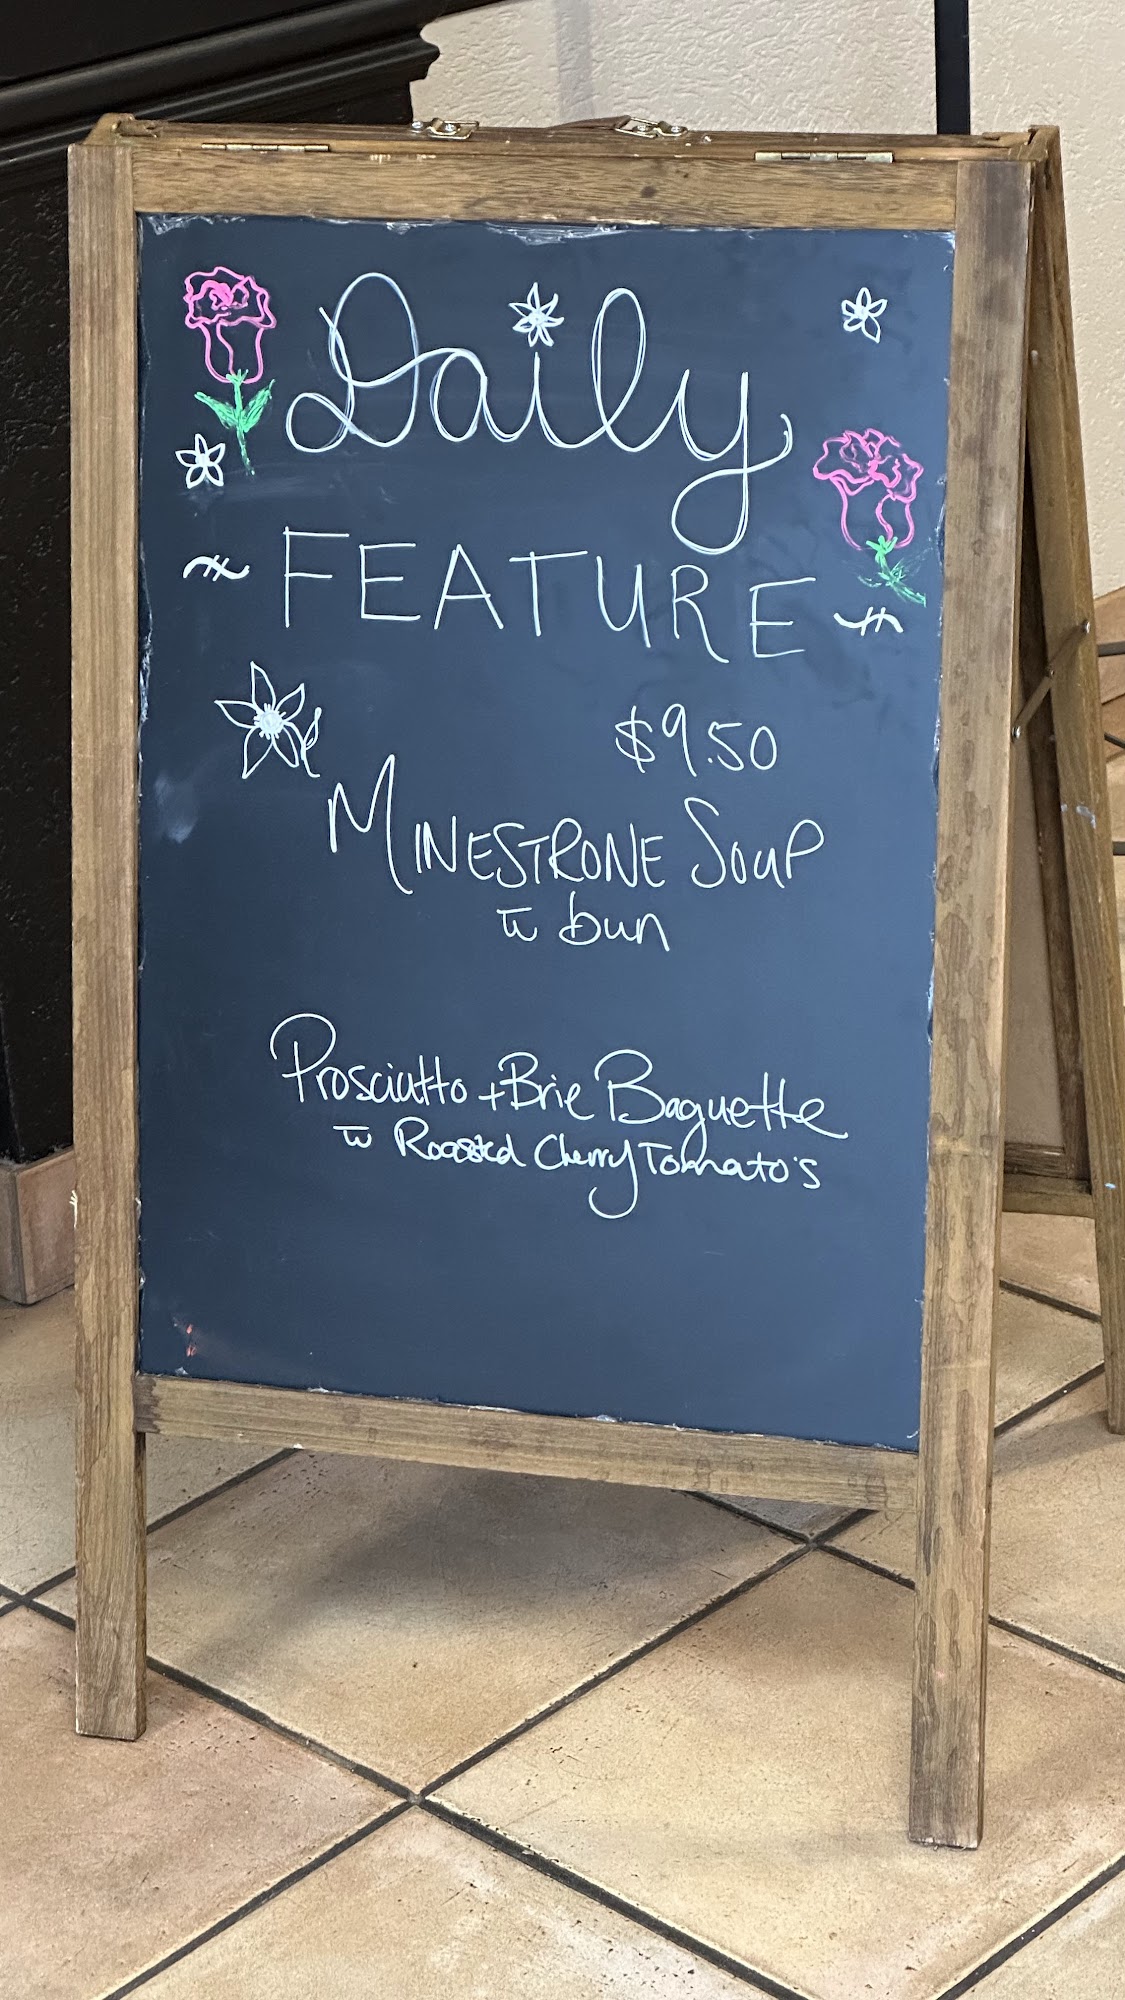 Daily
FEATURE
$9.50
MINESTRONE SOUP
w bun
Prosciutto + Brie Baguette
w Roasted Cherry Tomato's